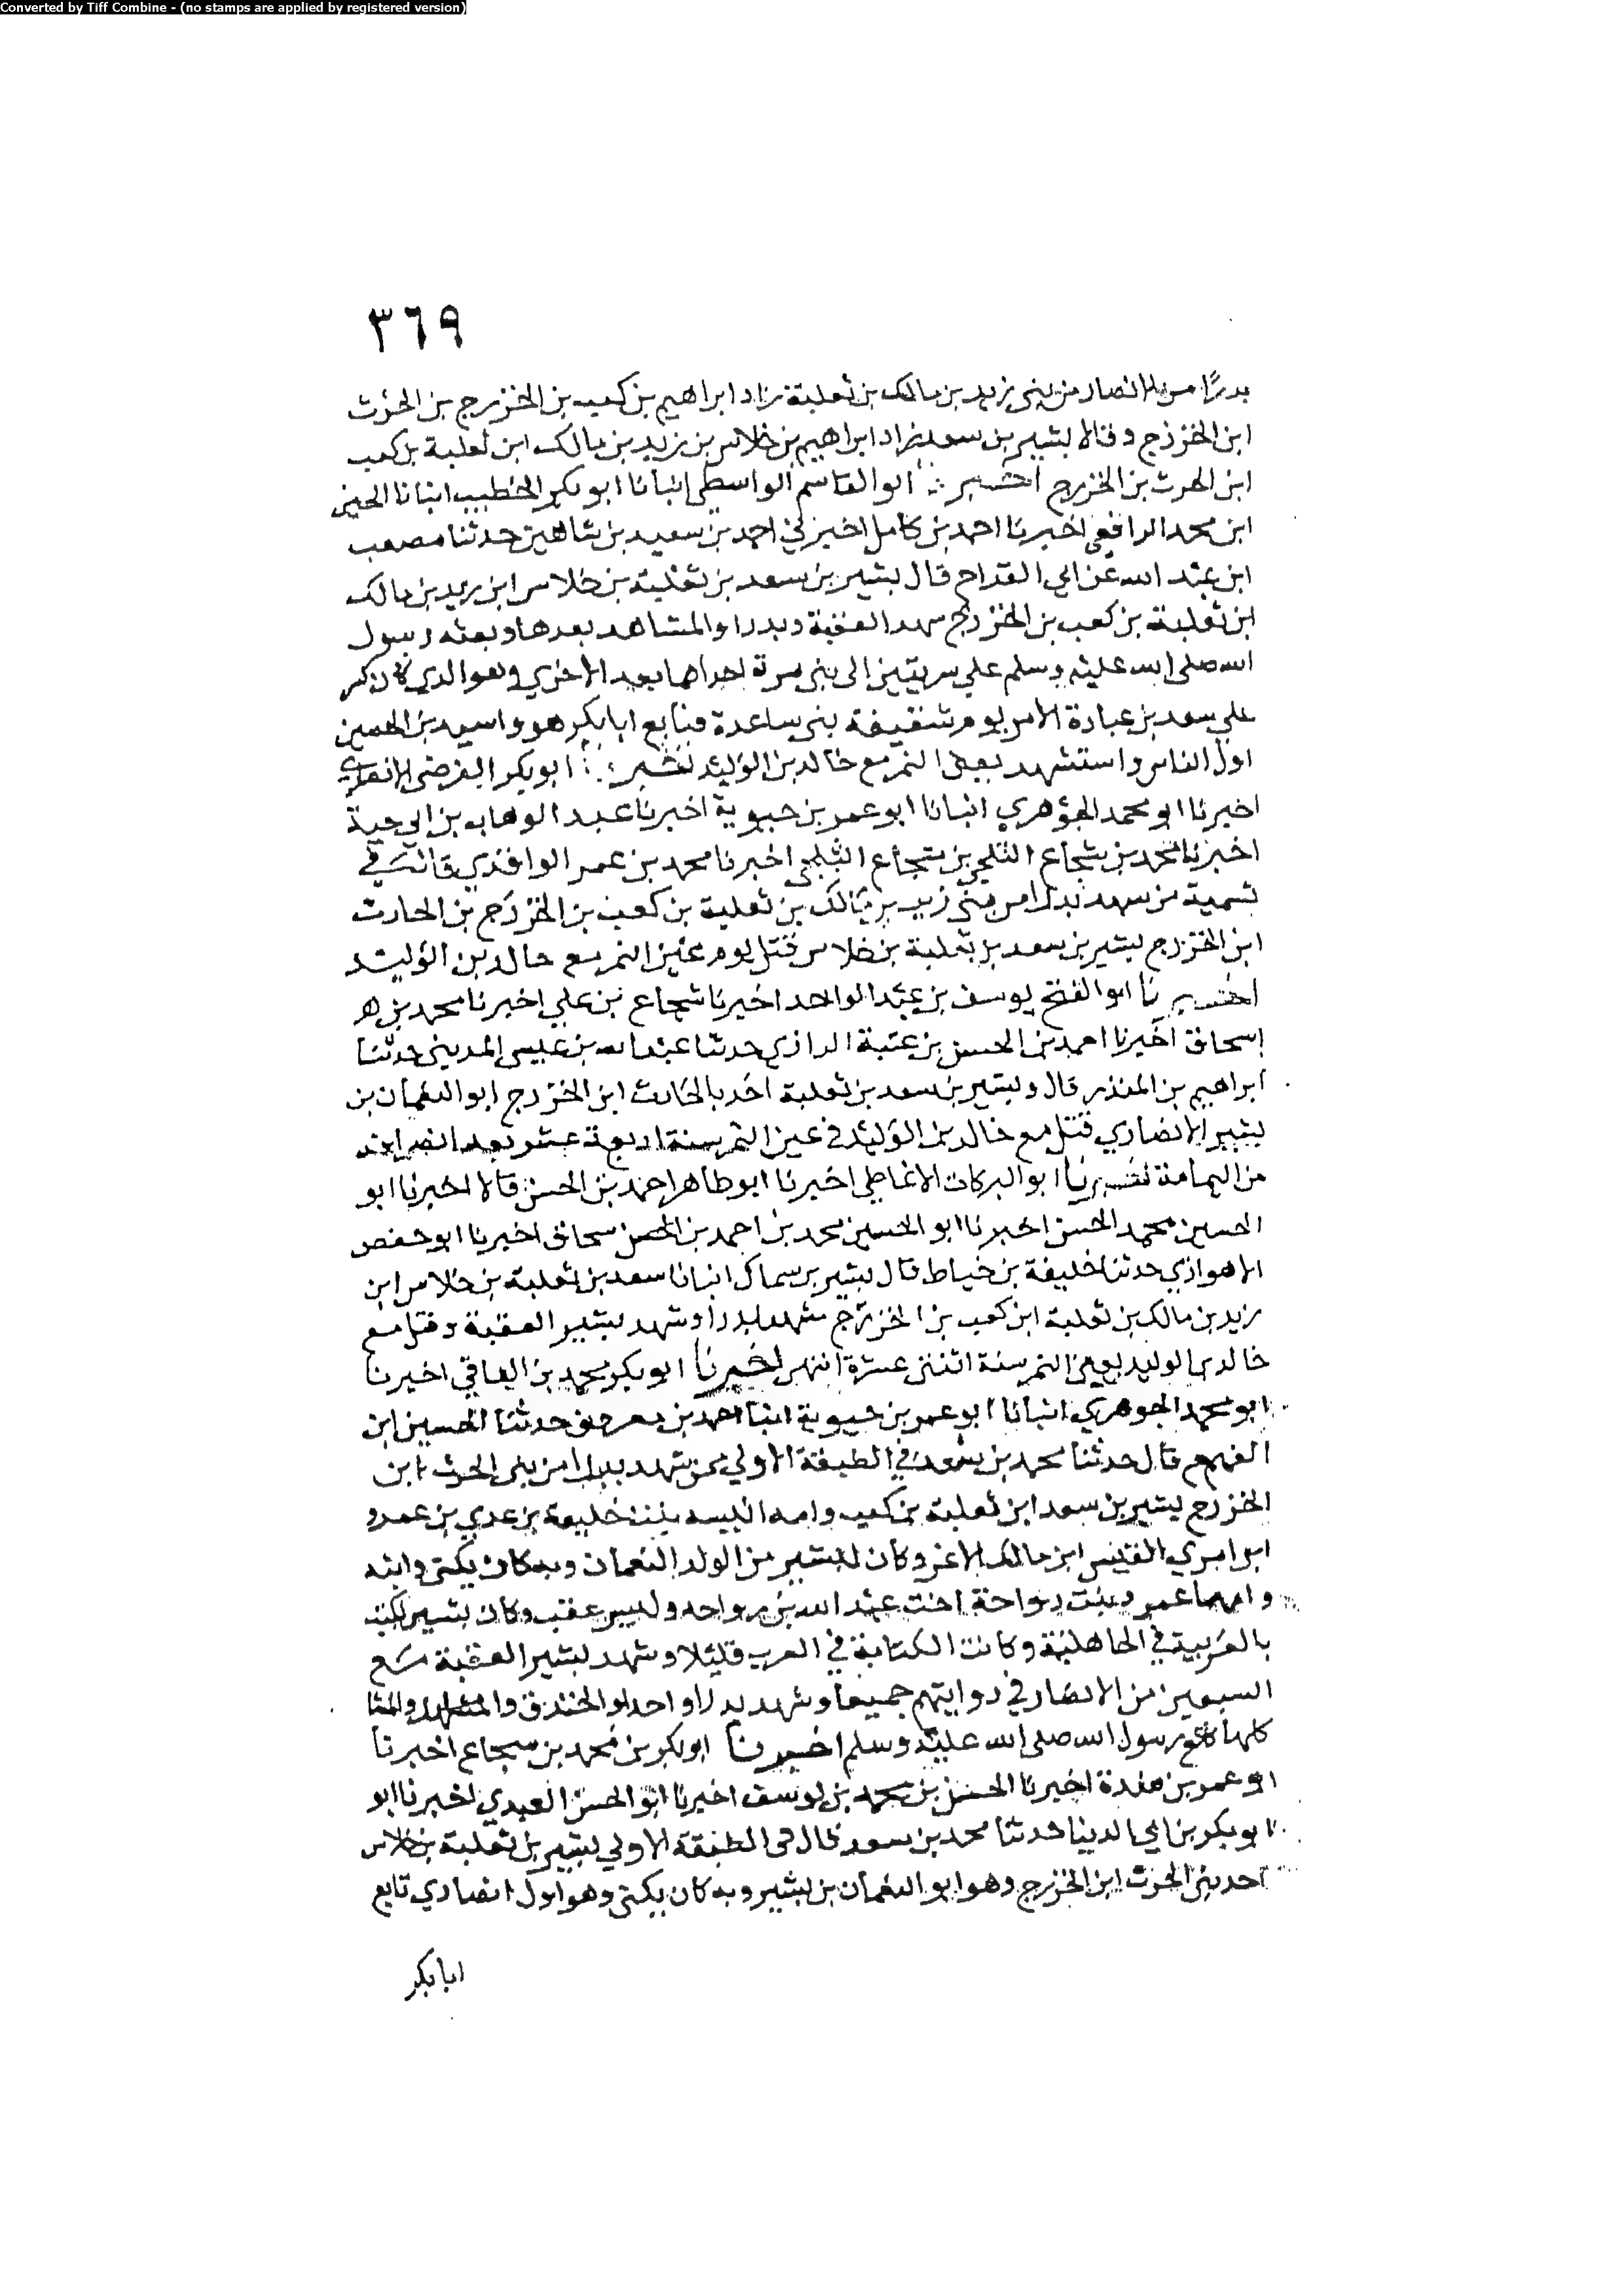 Converted by Tiff Combine - (no stamps are applied by registered version)
٣٦٩
بدرًا من الانصار من بني زيد بن مالك بن ثعلبة زاد ابراهيم بن كعب بن الخزرج بن الحرث
ابن الخزرج وقالا بشير بن سعد زاد ابراهيم بن خلاس بن زيد بن مالك ابن ثعلبة بن كعب
ابن الحرث بن الخزرج اخبرنا ابو القاسم الواسطي انبانا ابو بكر الخطيب انبانا الحسن
ابن محمد الرافقي اخبرنا احمد بن كامل اخبرني احمد بن سعيد بن شاهين حدثنا مصعب
ابن عبد الله عن ابي القداح قال بشير بن سعد بن ثعلبة بن خلاس ابن زيد بن مالك
ابن ثعلبة بن كعب بن الخزرج شهد العقبة وبدرا والمشاهد بعدها وبعثه رسول
الله صلى الله عليه وسلم علي سريتين الى بني مرة احداهما بعد الاخري وهو الذي كسر
علي سعد بن عبادة الامر يوم سقيفة بني ساعدة فبايع ابا بكر هو واسيد بن الحصين
اول الناس واستشهد بعين التمر مع خالد بن الوليد اخبرنا ابو بكر الفرضي الانصاري
اخبرنا ابو محمد الجوهري انبانا ابو عمر بن حيوية اخبرنا عبد الوهاب بن ابي حية
اخبرنا محمد بن شجاع الثلجي بن شجاع الثلجي اخبرنا محمد بن عمر الواقدي قال في
تسمية من شهد بدرا من بني زيد بن مالك بن ثعلبة بن كعب بن الخزرج بن الحارث
ابن الخزرج بشير بن سعد بن ثعلبة بن خلاس قتل يوم عين التمر مع خالد بن الوليد
اخبرنا ابو الفتح يوسف بن عبد الواحد اخبرنا شجاع بن علي اخبرنا محمد بن
إسحاق اخبرنا احمد بن الحسن بن عتبة الرازي حدثنا عبد الله بن عيسى المديني حدثنا
ابراهيم بن المنذر قال وبشير بن سعد بن ثعلبة اخو بالحارث ابن الخزرج ابو النعمان بن
بشير الانصاري قتل مع خالد بن الوليد في عين التمر سنة اربعة عشر بعد انصرافه
من اليمامة اخبرنا ابو البركات الانماطي اخبرنا ابو طاهر احمد بن الحسن قالا اخبرنا ابو
الحسين محمد الحسن اخبرنا ابو الحسين محمد بن احمد بن الحسن اسحاق اخبرنا ابو حفص
الاهوازي حدثنا خليفة بن خياط قال بشير بن سماك انبانا سعد بن ثعلبة بن خلاس ابن
زيد بن مالك بن ثعلبة ابن كعب بن الخزرج شهد بدرا وشهد بشير العقبة وقتل مع
خالد بن الوليد بعين التمر سنة اثنتى عشرة انتهى اخبرنا ابو بكر محمد بن الباقي اخبرنا
ابو محمد الجوهري انبانا ابو عمر بن حيوية انبا احمد بن معروف حدثنا الحسين ابن
الفهم قال حدثنا محمد بن سعد في الطبقة الاولي ممن شهد بدرا من بني الحرث ابن
الخزرج بشير بن سعد ابن ثعلبة بن كعب وامه انيسه بنت خليفة بن عدي بن عمرو
ابن امري القيس ابن مالك الاغر وكان لبشير من الولد النعمان وبه كان يكنى وابنه
وامهما عمرة بنت رواحة اخت عبد الله بن رواحه وليس عقب وكان بشير يكتب
بالعربية في الجاهلية وكانت الكتابة في العرب قليلا وشهد بشير العقبة مع
السبعين من الانصار في روايتهم جميعا وشهد بدرا واحدا والخندق والمشاهد
كلها مع رسول الله صلى الله عليه وسلم اخبرنا ابو بكر بن محمد بن شجاع اخبرنا
ابو عمر بن مندة اخبرنا الحسن بن محمد بن يوسف اخبرنا ابو الحسن العبدي اخبرنا ابو
ابو بكر بن ابي الدنيا حدثنا محمد بن سعد قال في الطبقة الاولي بشير بن ثعلبة بن خلاس
احد بني الحرث ابن الخزرج وهو ابو النعمان بن بشير وبه كان يكنى وهو اول انصاري تابع
ابا بكر